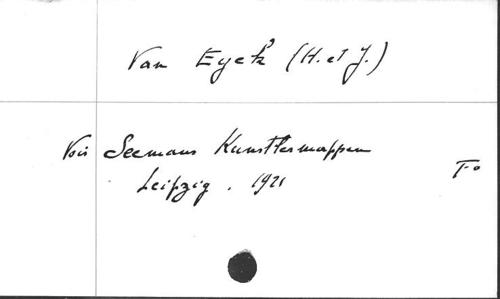 Van Eyck (H. et J.)
Voir Seemans Kunstlermappen
Fo
Leipzig. 1921